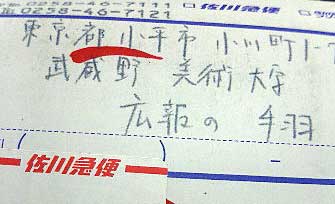 0258-46-7121
佐川急便
東京都小平市 小川町1-
武蔵野 美術大学
広報の 手羽
佐川急便